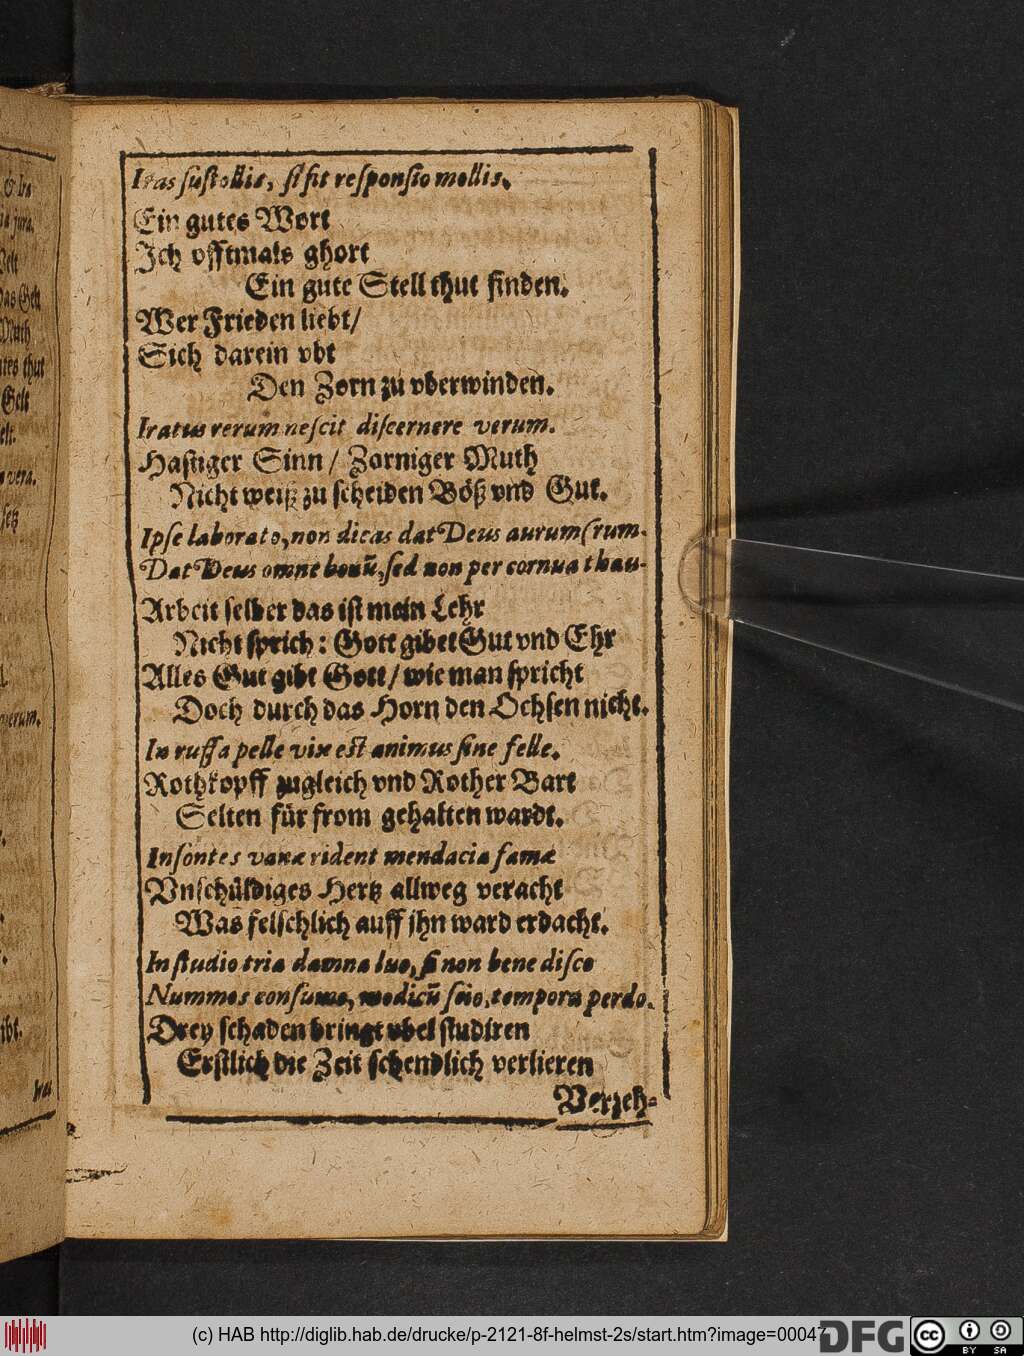 Iras sustollis, si sit responsio mollis.
Ein gutes Wort
Ich offtmals ghort
Ein gute Stell thut finden.
Wer Frieden liebt/
Sich darein vbt
Den Zorn zu vberwinden.
Iratus rerum nescit discernere verum.
Hastiger Sinn / Zorniger Muth
Nicht weiß zu scheiden Böß vnd Gut.
Ipse laborato, non dicas dat Deus aurum (rum.
Dat Deus omne bonũ, sed non per cornua thau-
Arbeit selber das ist mein Lehr
Nicht sprich: Gott gibet Gut vnd Ehr
Alles Gut gibt Gott / wie man spricht
Doch durch das Horn den Ochsen nicht.
In ruffa pelle vix est animus sine felle.
Rothkopff zugleich vnd Rother Bart
Selten für from gehalten wardt.
Insontes vanæ rident mendacia famæ
Vnschüldiges Hertz allweg veracht
Was felschlich auff jhn ward erdacht.
In studio tria damna luo, si non bene disco
Nummos consumo, modicũ scio, tempora perdo.
Drey schaden bringt vbel studiren
Erstlich die Zeit schendlich verlieren
Verzeh-
(c) HAB http://diglib.hab.de/drucke/p-2121-8f-helmst-2s/start.htm?image=00047
DFG
cc BY SA